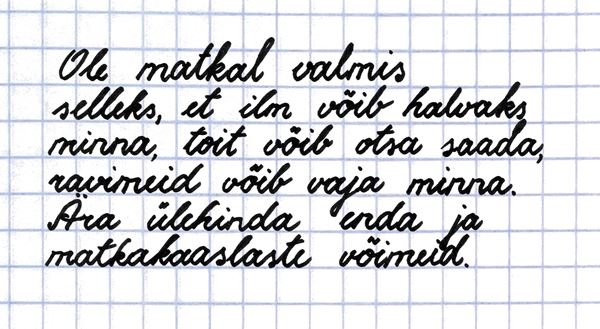 Ole matkal valmis
selleks, et ilm võib halvaks
minna, toit võib otsa saada,
ravimeid võib vaja minna.
Ära ülehinda enda ja
matkakaaslaste võimeid.